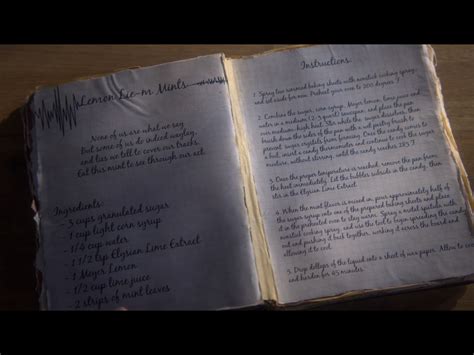 Lemon Lie-m Mints
None of us are what we say
But some of us do indeed waylay,
and lies we tell to cover our tracks.
Eat this mint to see through our act.
Ingredients:
- 3 cups granulated sugar
- 1 cup light corn syrup
- 1/4 cup water
- 1 1/2 tsp Elysian Lime Extract
- 1 Meyer Lemon
- 1/2 cup lime juice
- 2 strips of mint leaves
Instructions:
baking sheets with nonstick cooking spray,
and set aside for now. Preheat your oven to 200 degrees
2. Combine the sugar, corn syrup, Meyer Lemon, lime juice and
water in a medium (2-3 quart) saucepan, and place the pan
over medium-high heat. Stir while the sugar dissolves, then
brush down the sides of the pan with a wet pastry brush to
prevent sugar crystals from forming. Once the candy comes to
a boil, insert a candy thermometer and continue to cook the
mixture, without stirring, until the candy reaches
3. Once the proper temperature is reached, remove the pan from
the heat immediately. Let the bubbles subside in the candy, then
stir in the Elysian Lime Extract.
4. When the mint flavor is mixed in, pour approximately half of
the sugar syrup onto one of the prepared baking sheets and place
it in the preheated oven to stay warm. Spray a metal spatula with
nonstick cooking spray, and use the tool to begin spreading the candy
out and pushing it back together, working it across the board and
allowing it to cool.
5. Drop dollops of the liquid onto a sheet of wax paper. Allow to
cool and harden for 45 minutes.